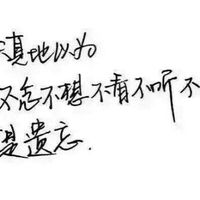 滇地以为
不念不想不看不听不
是遗忘.